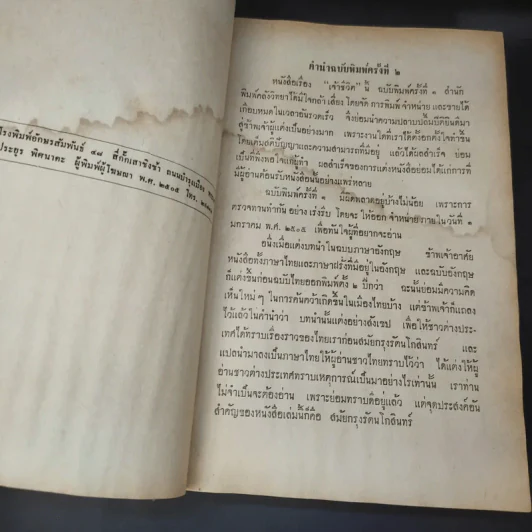 โรงพิมพ์อักษรสัมพันธ์ ๔๘ สี่กั๊กเสาชิงช้า ถนนบำรุงเมือง
ประยูร พิศนาคะ ผู้พิมพ์ผู้โฆษณา พ.ศ. ๒๕๐๕ โทร.
คำนำฉบับพิมพ์ครั้งที่ ๒
หนังสือเรื่อง "เจ้าชีวิต" นี้ ฉบับพิมพ์ครั้งที่ ๑ สำนัก
พิมพ์คลังวิทยาได้มีใจกล้าเสี่ยง โดยจัดการพิมพ์ จำหน่าย และขายได้
เกือบหมดในเวลาอันรวดเร็ว จึงย่อมนำความปลาบปลื้มปีติยินดีมา
สู่ข้าพเจ้าผู้แต่งเป็นอย่างมาก เพราะงานใดที่เราได้ตั้งอกตั้งใจทำขึ้น
โดยเต็มสติปัญญาและความสามารถที่มีอยู่ แล้วได้ผลสำเร็จ ย่อม
เป็นที่พึงพอใจแก่ผู้ทำ ผลสำเร็จของการแต่งหนังสือย่อมได้แก่การที่
มีผู้อ่านต้อนรับหนังสือนั้นอย่างแพร่หลาย
ฉบับพิมพ์ครั้งที่ ๑ มีผิดพลาดอยู่บ้างไม่น้อย เพราะการ
ตรวจทานทำกันอย่างเร่งรีบ โดยจะให้ออกจำหน่ายภายในวันที่ ๑
มกราคม พ.ศ. ๒๕๐๕ เพื่อทันใจผู้ที่อยากจะอ่าน
อนึ่งเมื่อแต่งบทนำในฉบับภาษาอังกฤษ ข้าพเจ้าอาศัย
หนังสือทั้งภาษาไทยและภาษาฝรั่งที่มีอยู่ในอังกฤษ และฉบับอังกฤษ
ก็แต่งขึ้นก่อนฉบับไทยออกพิมพ์ตั้ง ๒ ปีกว่า ฉะนั้นย่อมมีความคิด
เห็นใหม่ ๆ ในการค้นคว้าเกิดขึ้นในเมืองไทยบ้าง แต่ข้าพเจ้าก็แถลง
ไว้แล้วในคำนำว่า บทนำนั้นแต่งอย่างสังเขป เพื่อให้ชาวต่างประ-
เทศได้ทราบเรื่องราวของไทยเราก่อนสมัยกรุงรัตนโกสินทร์ และ
แปลนำมาลงเป็นภาษาไทยให้ผู้อ่านชาวไทยทราบไว้ว่า ได้แต่งให้ผู้
อ่านชาวต่างประเทศทราบเหตุการณ์เป็นมาอย่างไรเท่านั้น เราท่าน
ไม่จำเป็นจะต้องอ่าน เพราะย่อมทราบดีอยู่แล้ว แต่จุดประสงค์อัน
สำคัญของหนังสือเล่มนี้ก็คือ สมัยกรุงรัตนโกสินทร์